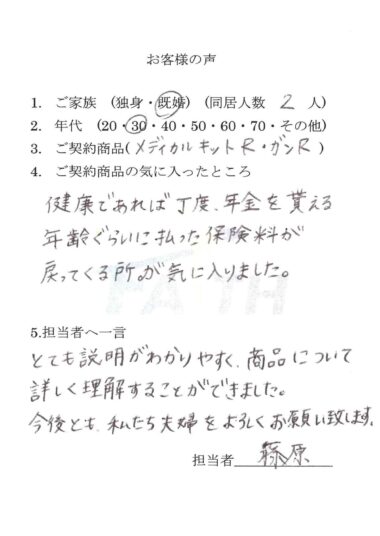 お客様の声
1. ご家族 (独身・既婚) (同居人数 2 人)
2. 年代 (20・30・40・50・60・70・その他)
3. ご契約商品(メディカルキットR・ガンR)
4. ご契約商品の気に入ったところ
健康であれば丁度、年金を貰える
年齢ぐらいに払った保険料が
戻ってくる所。が気に入りました。
FAITH
5.担当者へ一言
とても説明がわかりやすく、商品について
詳しく理解することができました。
今後とも、私たち夫婦をよろしくお願い致します。
担当者 篠原